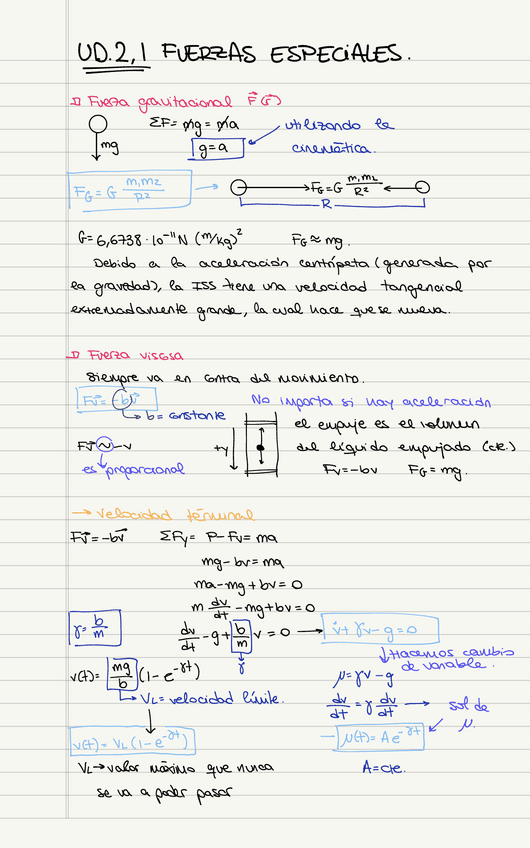 UD.2,1 FUERZAS ESPECIALES.
Fuerza gravitacional F⃗(r⃗)
mg
ΣF = mg = ma
g = a
utilizando la
cinemática.
F_G = G m₁m₂/R²
F_G = G m₁m₂/R²
R
G = 6,6738 · 10⁻¹¹ N (m/kg)²
F_G ≈ mg.
Debido a la aceleración centrípeta (generada por
la gravedad), la ISS tiene una velocidad tangencial
extremadamente grande, la cual hace que se mueva.
Fuerza viscosa
Siempre va en contra del movimiento.
F_v⃗ = -bv⃗
b = constante
F_v⃗ ~ -v
es proporcional
+y
No importa si hay aceleración
el empuje es el volumen
del líquido empujado (cte.)
F_v = -bv F_G = mg.
→ velocidad terminal
F_v⃗ = -bv⃗ ΣF_y = P - F_v = ma
mg - bv = ma
ma - mg + bv = 0
m dv/dt - mg + bv = 0
γ = b/m
dv/dt - g + b/m v = 0 → v̇ + γv - g = 0
γ
Hacemos cambio
de variable.
v(t) = mg/b (1 - e^-γt)
V_L = velocidad límite.
μ = γv - g
dμ/dt = γ dv/dt → sol de
μ.
v(t) = V_L (1 - e^-γt)
μ(t) = A e^-γt
V_L → valor máximo que nunca
se va a poder pasar
A = cte.